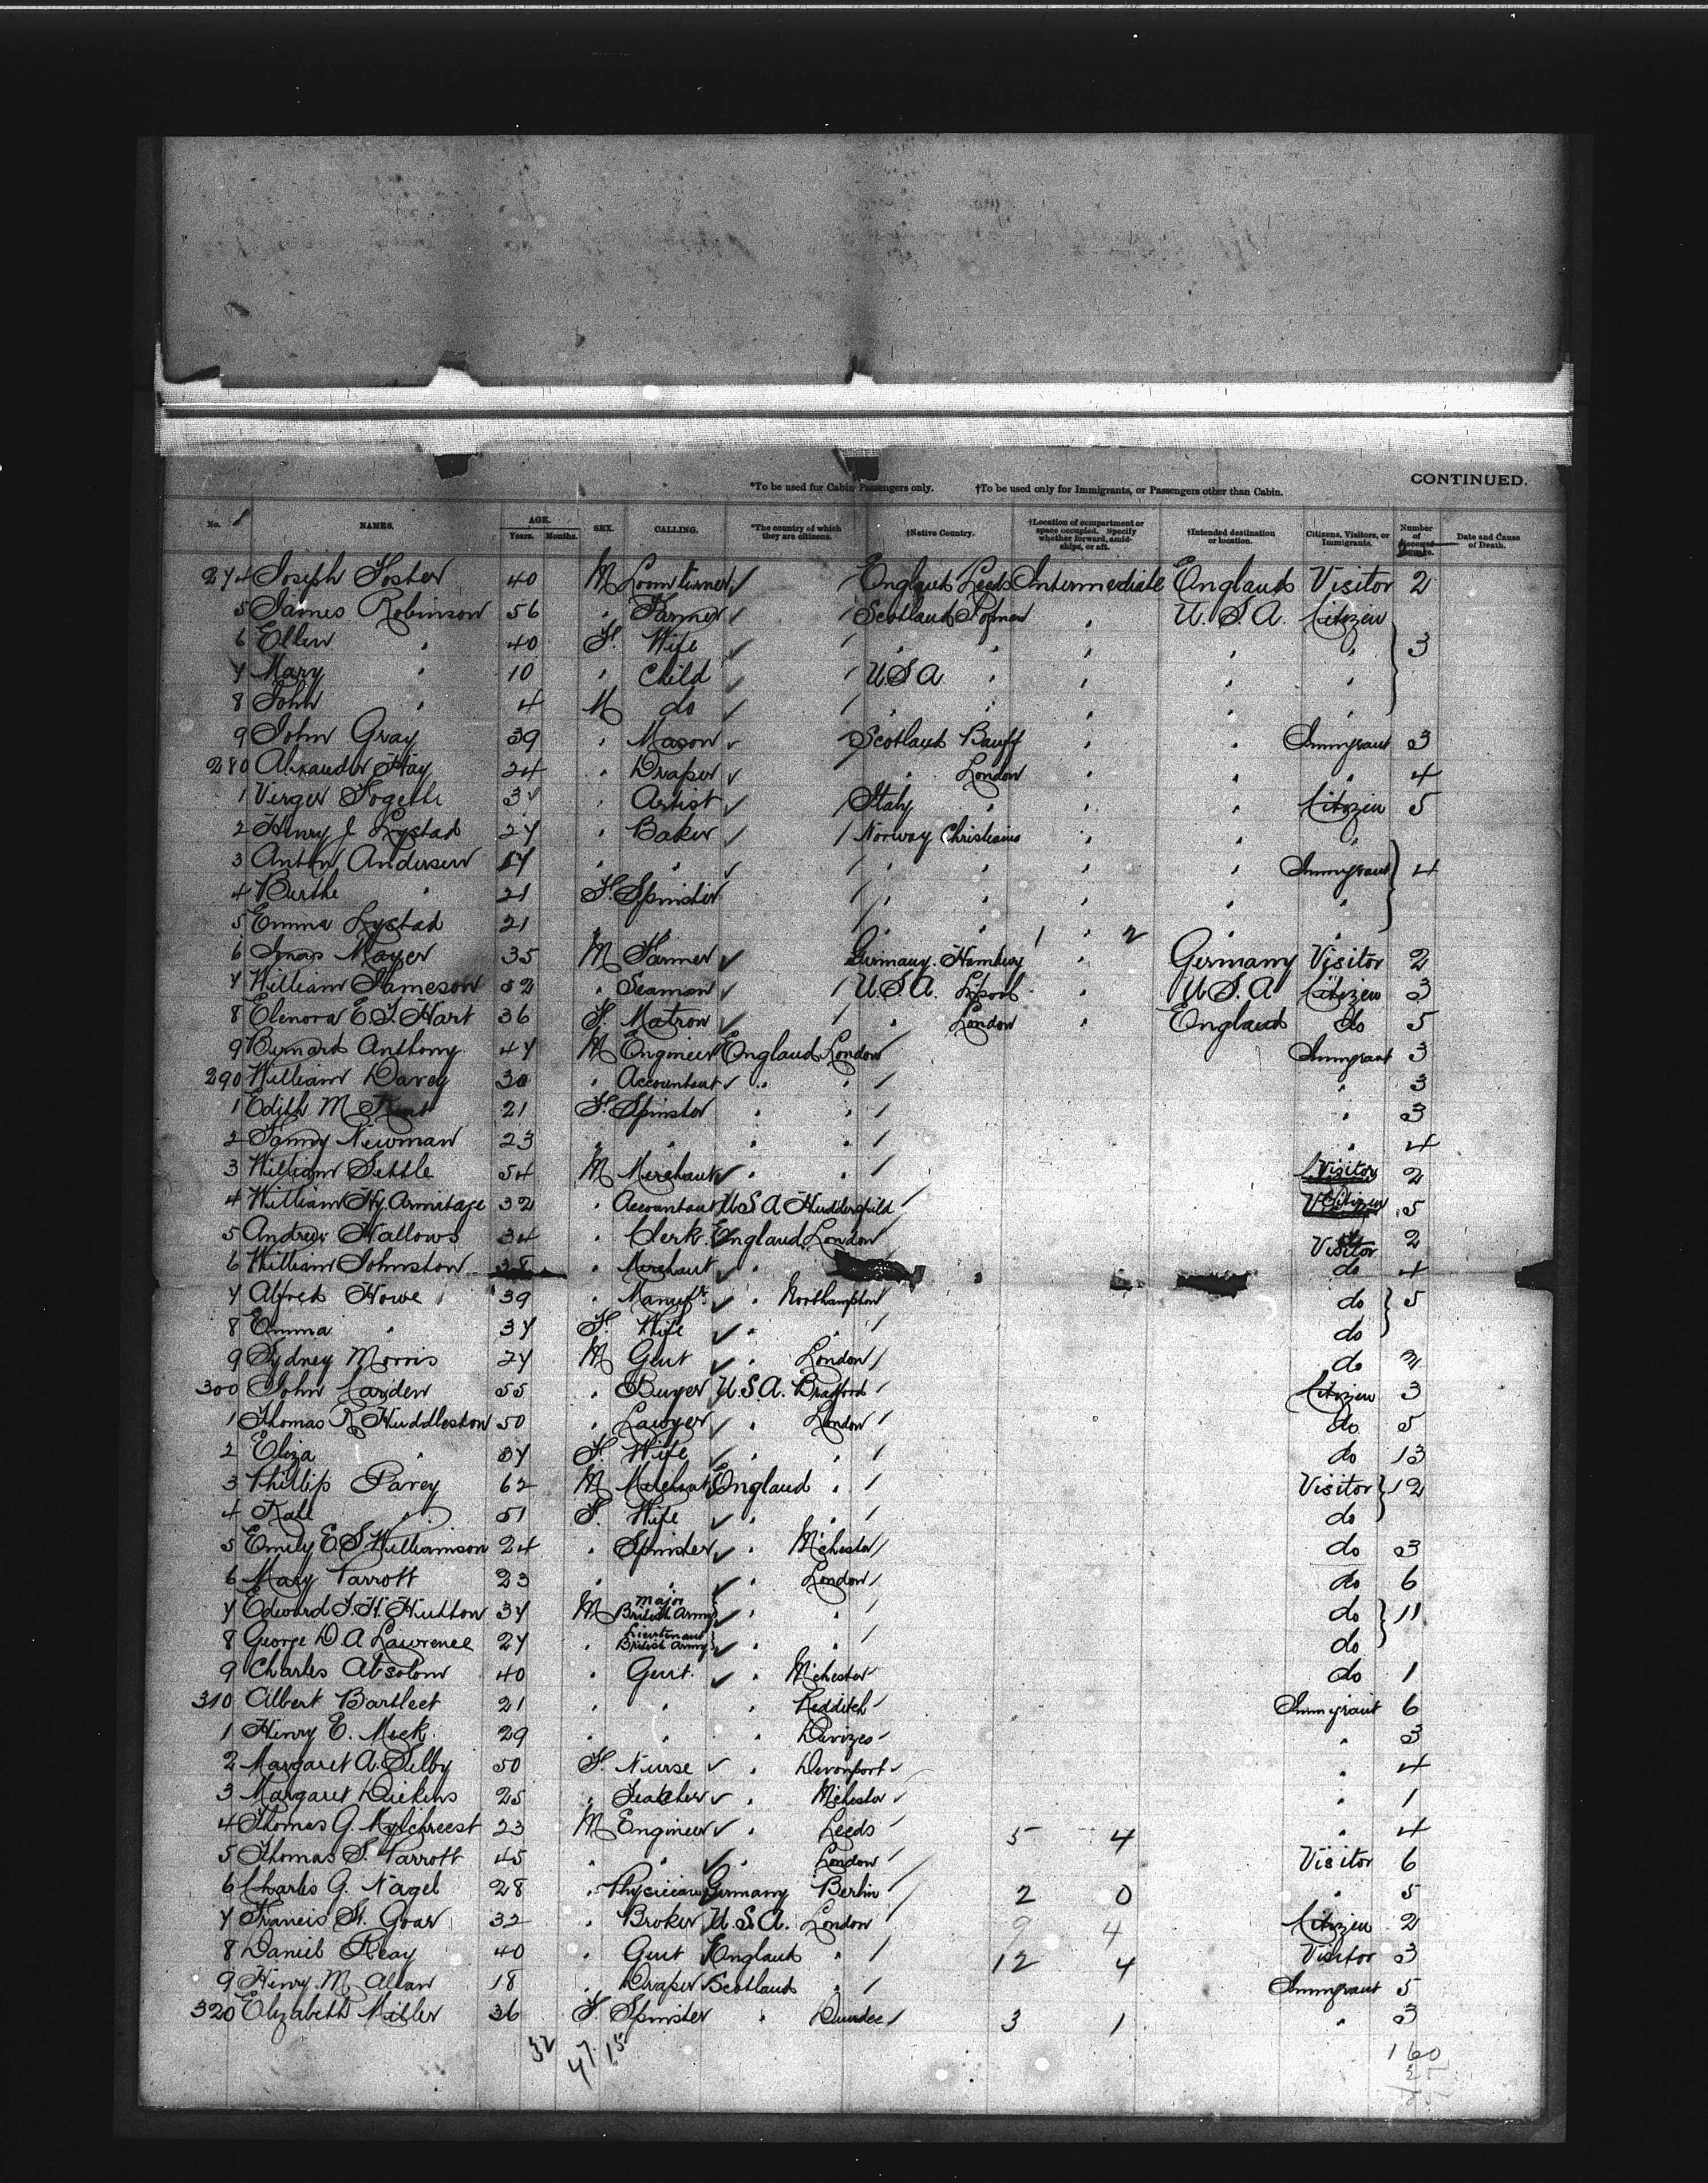 CONTINUED.
*To be used for Cabin Passengers only. †To be used only for Immigrants, or Passengers other than Cabin.
No. NAMES. AGE. Years. Months. SEX. CALLING. *The country of which they are citizens. †Native Country. †Location of compartment or space occupied. Specify whether forward, amidships, or aft. †Intended destination or location. Citizens, Visitors, or Immigrants. Number of Date and Cause of Death.
274 Joseph Foster 40 M Loomturner England Leeds Intermediate England Visitor 2
5 James Robinson 56 " Farmer Scotland " U.S.A. Citizen
6 Ellen " 40 F. Wife " " " " " 3
7 Mary " 10 " Child U.S.A " " " "
8 John " 4 M do " " " " "
9 John Gray 39 " Mason Scotland Banff " " Immigrant 3
280 Alexander Hay 24 " Draper " London " " " 4
1 Verger 37 " Artist Italy " " " Citizen 5
2 Henry J Lystad 27 " Baker Norway Christiania " " "
3 Anton Andersen 57 " " " " " " Immigrant 4
4 Berthe " 21 F. Spinster " " " " "
5 Emma Lystad 21 " " " " " 2 " "
6 Mayer 35 M Farmer Germany. Hamburg " Germany Visitor 2
7 William Jameson 52 " Seaman U.S.A. L'pool " U.S.A Citizen 3
8 Elenora E. F. Hart 36 F. Matron " London " England do 5
9 Bernard Anthony 47 M Engineer England London Immigrant 3
290 William Davey 30 " Accountant " " " 3
1 Edith M 21 F. Spinster " " " 3
2 Fanny Newman 23 " " " " " 4
3 William Settle 54 M Merchant " " Visitor 2
4 William Hy. Armitage 32 " Accountant U.S.A Huddersfield Citizen 5
5 Andrew Hallows 34 " Clerk England London Visitor 2
6 William Johnston 38 " Merchant " do 4
7 Alfred Howe 39 " Manufr. " Northampton do 5
8 Emma " 37 F. Wife " " do
9 Sydney Morris 27 M Gent " London do 3
300 John Carden 55 " Buyer U.S.A. Bradford Citizen 3
1 Thomas R Huddleston 50 " Lawyer " London do 5
2 Eliza " 37 F. Wife " " do 13
3 Phillip Pavey 62 M Merchant England " Visitor 12
4 Kate " 51 F. Wife " " do
5 Emily E S Williamson 24 " Spinster " M'chester do 3
6 Mary Parrott 23 " " " London do 6
7 Edward T. H. Hutton 37 M Major British Army " " do 11
8 George D A Lawrence 27 " Lieutenant British Army " " do
9 Charles Absolom 40 " Gent. " M'chester do 1
310 Albert Bartleet 21 " " " Redditch Immigrant 6
1 Henry E. Meek 29 " " " Devizes " 3
2 Margaret A. Selby 50 F. Nurse " Devonport " 4
3 Margaret Dickens 25 " Teacher " M'chester " 1
4 Thomas G. Kylchreest 23 M Engineer " Leeds 5 4 " 4
5 Thomas S. Parrott 45 " " " London Visitor 6
6 Charles G. Nagel 28 " Physician Germany Berlin 2 0 " 5
7 Francis St. Goar 32 " Broker U.S.A. London 9 4 Citizen 2
8 Daniel Reay 40 " Gent England " 12 4 Visitor 3
9 Henry M Allan 18 " Draper Scotland " Immigrant 5
320 Elizabeth Miller 36 F. Spinster " Dundee 3 1 " 3
32 47 15
160